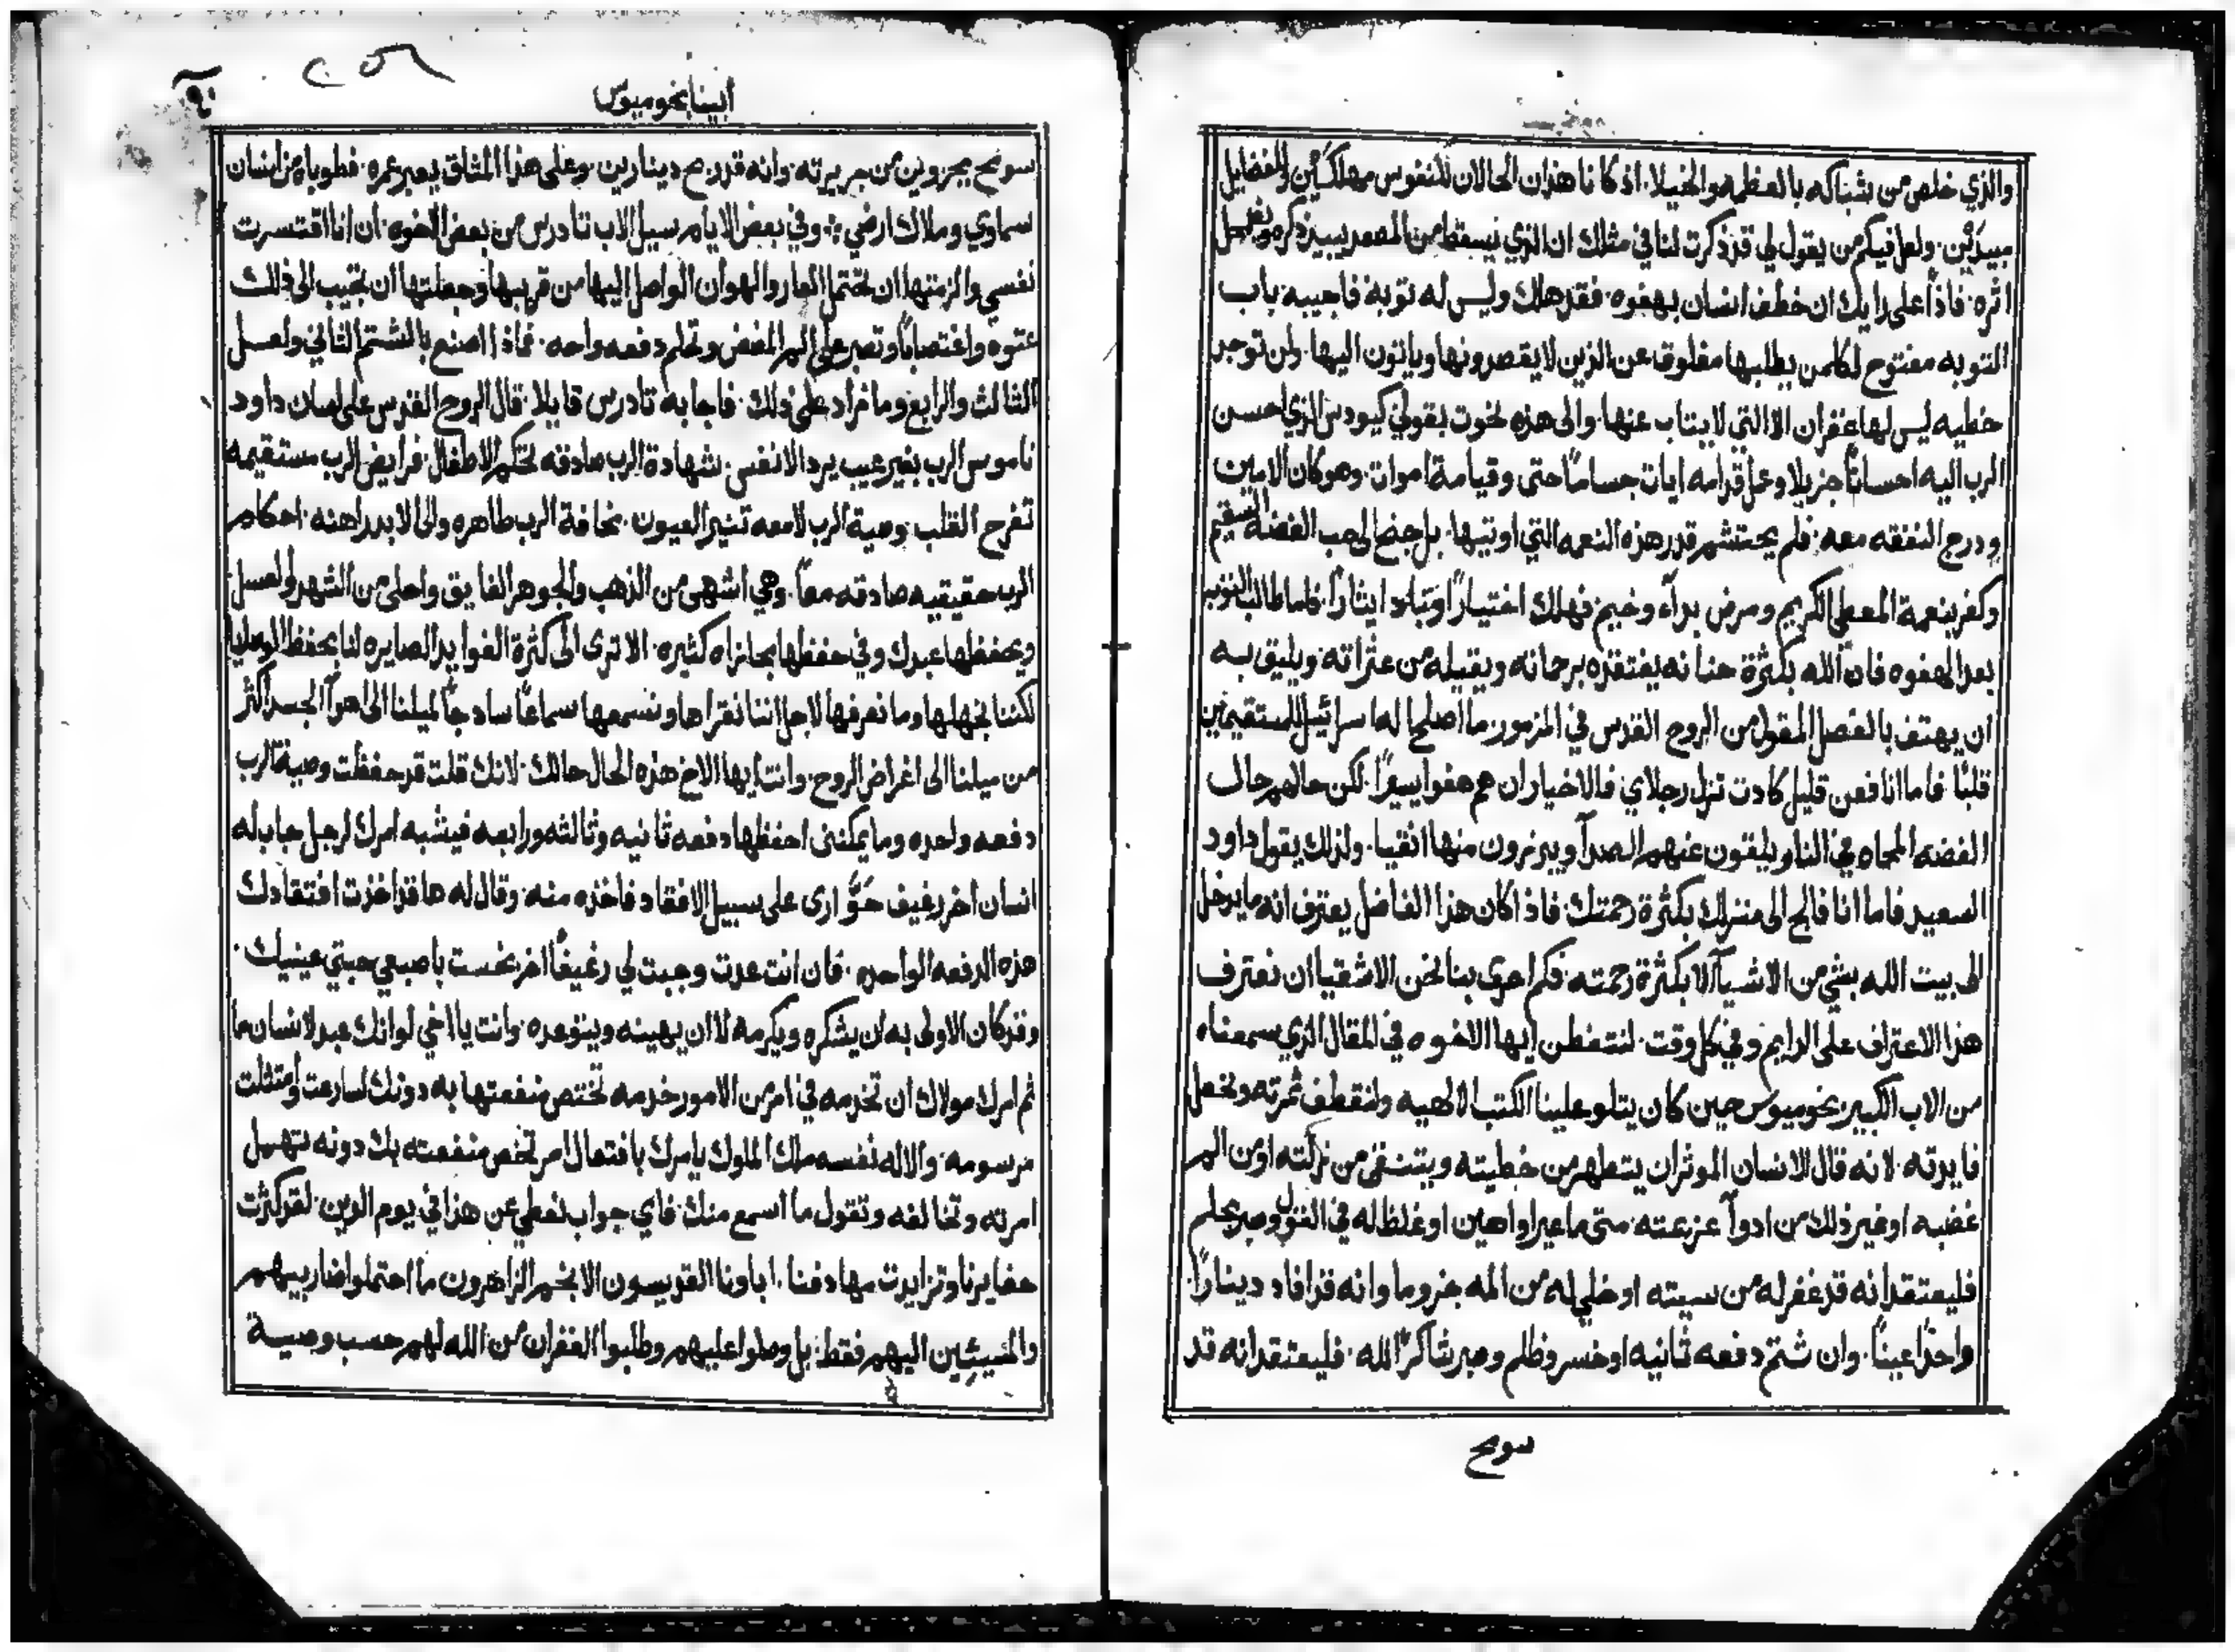 والذي خلص من شباكه بالعظمه والخيلا. اذ كانا هذان الحالان للنفوس مهلكين وللفضايل
مبيدَين. ولعل فيكم من يقول لي قد ذكرت لنا في مثلك ان الذي يسقط من المصعد يبيد ذكره
اثره. فاذاً على رايك ان خطف انسان بهفوه. فقد هلك وليس له توبة فاجيبه باب
التوبه مفتوح لكلمن يطلبها مغلوق عن الذين لا يقصدونها ويأتون اليها. ولن توجد
خطيه ليس لها غفران الا التي لا يتاب عنها. والى هذه نحوت بقولي كيودس الذي احسن
الرب اليه احساناً جزيلا وعمل قدامه ايات جساماً حتى وقيامة اموات. وهو كان الامين
ودرج النفقه معه. فلم يحتشم قدر هذه النعمه التي اوتيها. بل جنح الى حب الفضه السقيم
وكفر بنعمة المعطي الكريم ومرض بدآء وخيم فهلك اختياراً وباد ايثاراً. فاما طالب التوبه
بعد الهفوه فان الله بكثرة حنانه يفتقده برحماته ويقيله من عثراته. ويليق به
ان يهتف بالفصل المقول من الروح القدس في المزمور. ما اصلح اله اسرائيل للمستقيمين
قلبًا. فاما انا فعن قليل كادت تزل رجلاي فالاخيار ان هم هفوا يسيراً. لكن حالهم حال
الفضه المحماه في النار يلقون عنهم الصدآ ويبرزون منها انقيا. ولذلك يقول داود
السعيد فاما انا فالج الى منزلك بكثرة رحمتك. فاذا كان هذا الفاضل يعترف انه ما يدخل
الى بيت الله بشي من الاشيآ الا بكثرة رحمته. فكم احرى بنا نحن الاشقيا ان نعترف
هذا الاعتراف على الدايم وفي كل وقت. لنتفطن ايها الاخوه في المقال الذي سمعناه
من الاب الكبير بخوميوس حين كان يتلو علينا الكتب الالهيه ولنقطف ثمرته ونحصل
فايدته. لانه قال الانسان الموثر ان يتطهر من خطيته ويتنقى من زلته او من الم
غضبه او غير ذلك من ادوآ عزعته. متى ما عير او اهين او غلظ له في القول وصبر بحلم
فليعتقد انه قد غفر له من سيئته او خلي له من المه جزوما وانه قد افاد ديناراً
واحدًا عينًا. وان شتم دفعه ثانيه او خسر وظلم وصبر شاكراً لله. فليعتقد انه قد
سومح
ابينا بخوميوس
سومح بجزوين من جريرته. وانه قد ربح دينارين. وعلى هذا المثاق يعبر عمره. فطوباه من انسان
سماوي وملاك ارضي. وفي بعض الايام سيل الاب تادرس من بعض الاخوه. ان انا اقتسرت
نفسي والزمتها ان تحتمل العار والهوان الواصل اليها من قريبها وجعلتها ان تجيب الى ذلك
عنوه واغتصاباً وتصبر على الم المضض وتحلم دفعه واحه. فماذا اصنع بالشتم الثاني ولعل
الثالث والرابع وما زاد على ذلك. فاجابه تادرس قايلا. قال الروح القدس على لسان داود
ناموس الرب بغير عيب يرد الانفس. شهادة الرب صادقه تحكم الاطفال. فرايض الرب مستقيمه
تفرح القلب. وصية الرب لامعه تنير العيون. مخافة الرب طاهره والى الابد راهنه. احكام
الرب حقيقيه صادقه معاً. وهي اشهى من الذهب والجوهر الفايق واحلى من الشهد والعسل
ويحفظها عبدك وفي حفظها مجازاه كثيره. الا ترى الى كثرة الفوايد الصايره لنا بحفظ الوصايا
لكننا نجهلها وما نعرفها لاجل اننا نقراها ونسمعها سماعاً ساذجاً لميلنا الى هوآ الجسد اكثر
من ميلنا الى اغراض الروح. وانت ايها الاخ هذه الحال حالك. لانك قلت قد حفظت وصية الرب
دفعه واحده وما يمكنني احفظها دفعه ثانيه وثالثه ورابعه فيشبه امرك لرجل جاب له
انسان اخر رغيف حُوّارى على سبيل الافتقاد فاخذه منه. وقال له ها قد اخذت افتقادك
هذه الدفعه الواحده. فان انت عدت وجبت لي رغيفاً اخر نخست باصبعي حبتي عينيك.
وقد كان الاولى به ان يشكره ويكرمه لا ان يهينه ويتوعده. وانت يا اخي لو انك عبد لانسان ما
ثم امرك مولاك ان تخدمه في امر من الامور خدمه تختص منفعتها به دونك لسارعت وامتثلت
مرسومه. والاله نفسه ملك الملوك يامرك بافتعال امر تخص منفعته بك دونه تهمل
امرته وتخالفه وتقول ما اسمع منك. فاي جواب نعطي عن هذا في يوم الدين. لقد كثرت
حفايرنا وتزايدت مهادفنا. اباونا القديسون الانجم الزاهرون ما احتملوا ضاربيهم
والمسيئين اليهم فقط. بل وصلوا عليهم وطلبوا الغفران من الله لهم حسب وصية